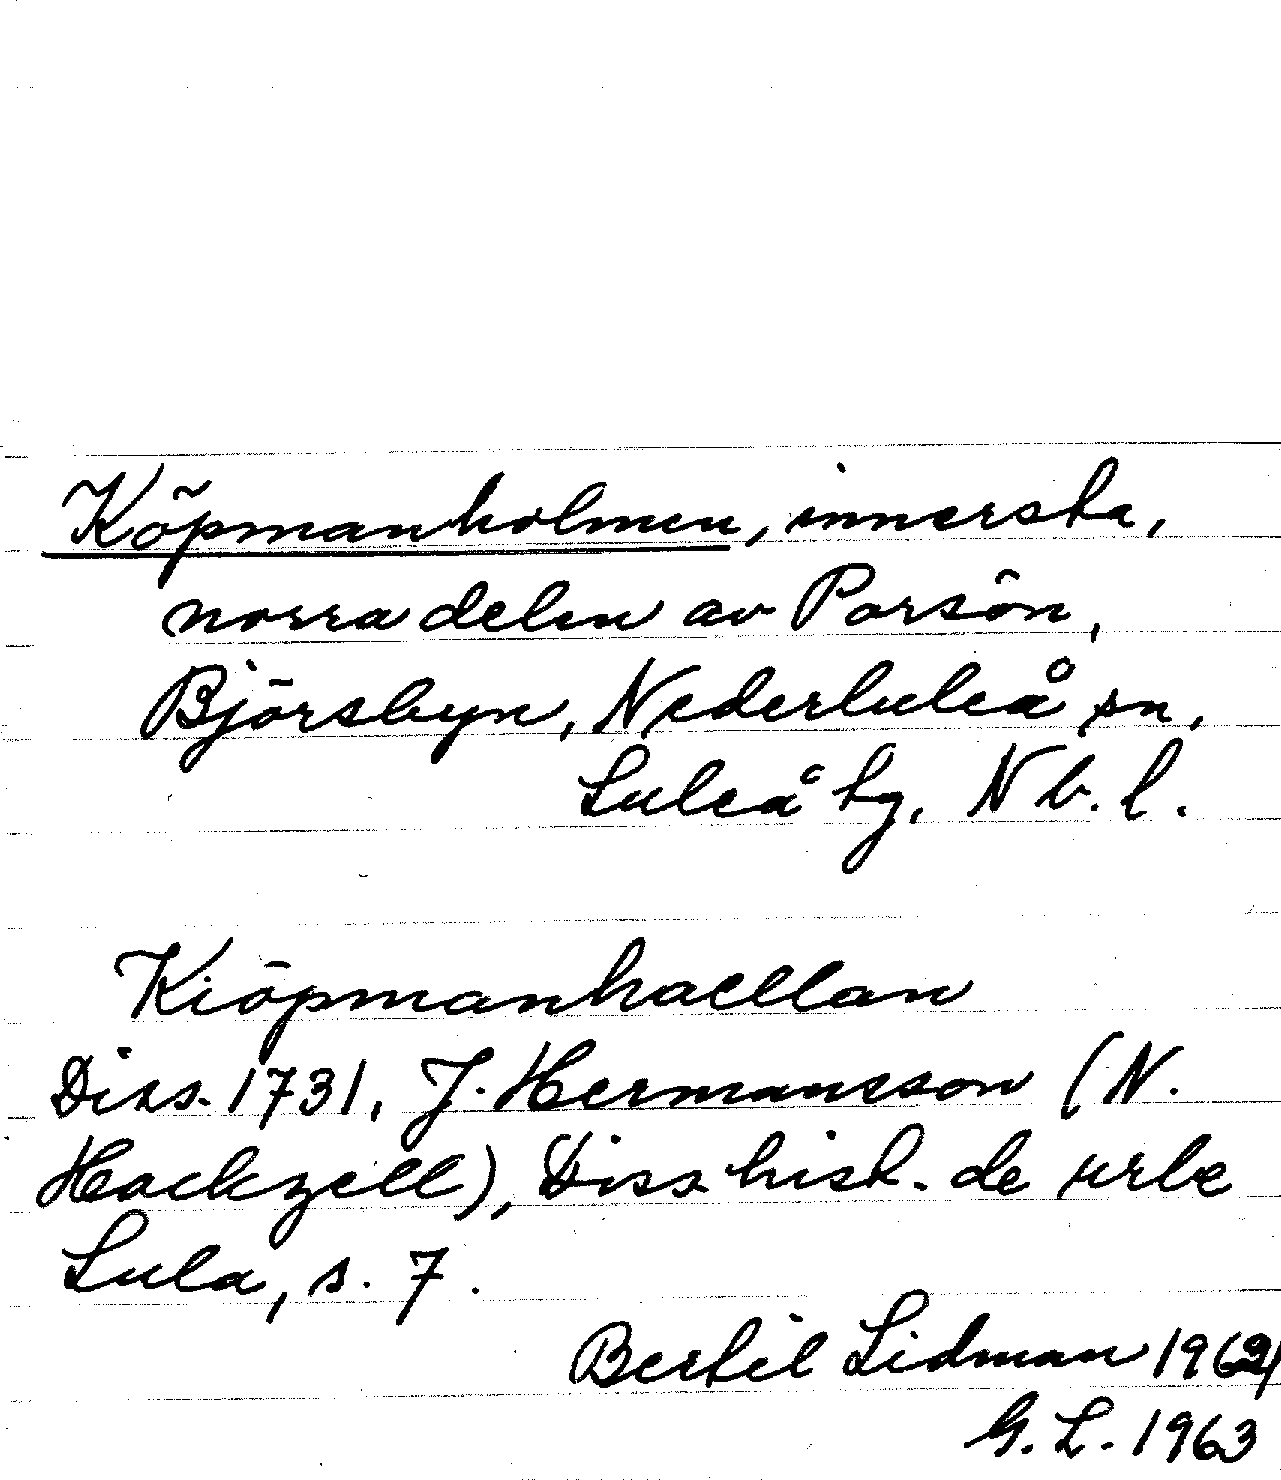 Köpmanholmen, innersta,
norra delen av Porsön,
Björsbyn, Nederluleå sn,
Luleå tg, Nb. l.
Kiöpmanhaellan
Diss. 1731, J. Hermansson (N.
Hackzell), Diss. hist. de urbe
Lula, s. 7.
Bertil Lidman 1962/
G. L. 1963